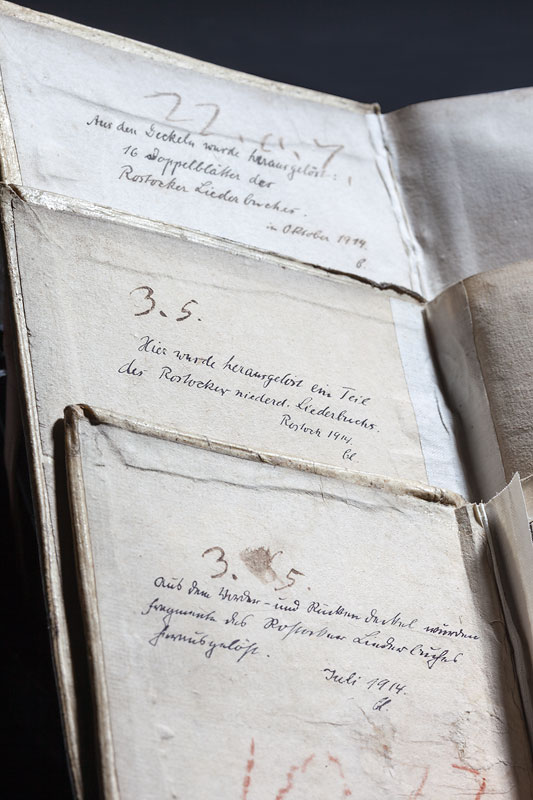 Aus den Deckeln wurde herausgelöst:
16 Doppelblätter des
Rostocker Liederbuches.
in Oktober 1914.
3. 5.
Hier wurde herausgelöst ein Teil
des Rostocker niederd. Liederbuchs.
Rostock 1914.
Cl.
3. 5.
Aus dem Vorder- und Rücken deckel wurden
Fragmente des Rostocker Liederbuches
herausgelöst.
Juli 1914.
Cl.